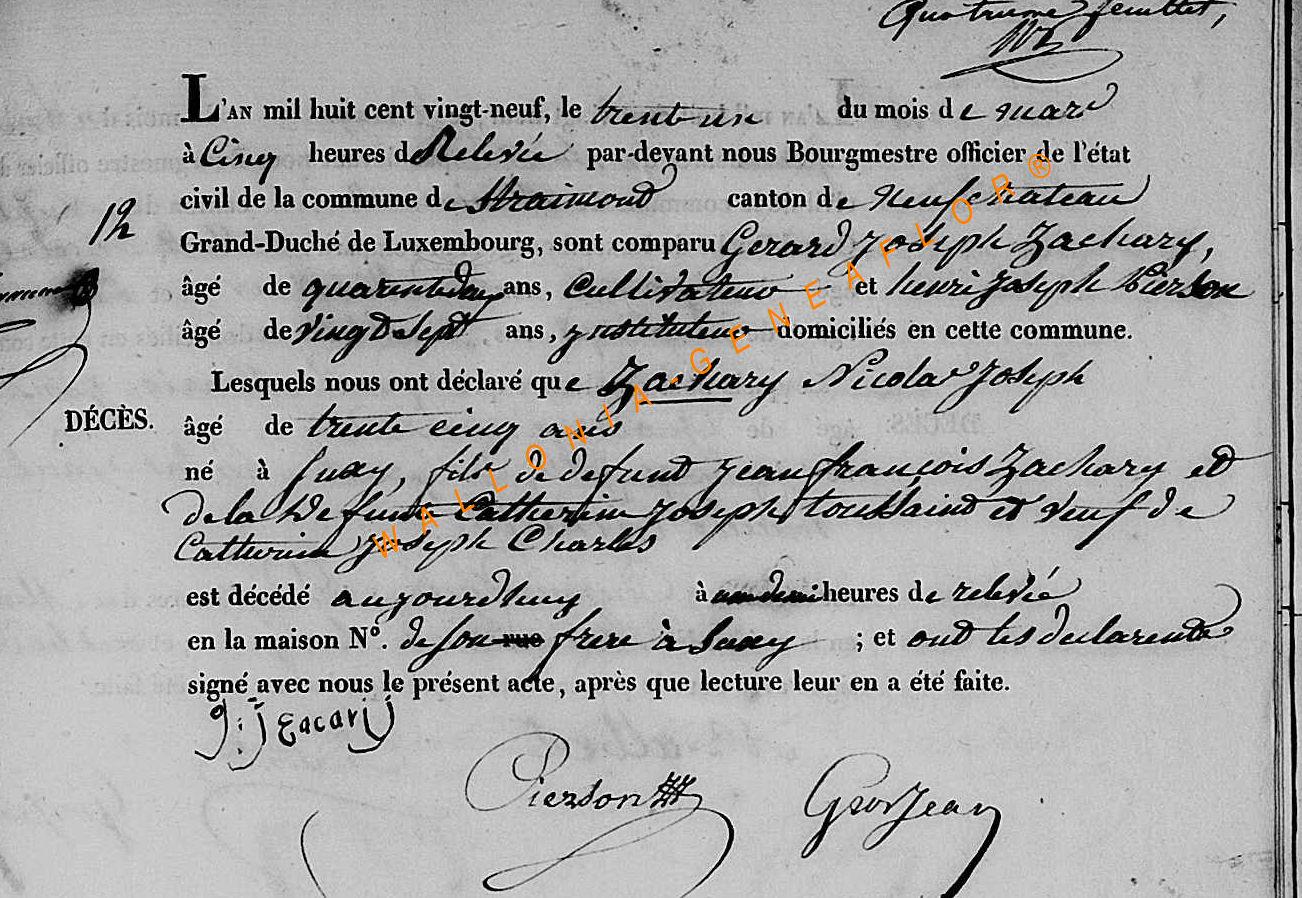 Quatrieme feuillet,
L'AN mil huit cent vingt-neuf, le trent-un du mois de mars
à Cinq heures de Relevée par-devant nous Bourgmestre officier de l'état
civil de la commune de Straimond canton de Neufchateau
12
Grand-Duché de Luxembourg, sont comparu Gerard Joseph Zachary,
âgé de quarente ans, Cultivateur et henri Joseph Pierson
âgé de Vingt Sept ans, instituteur domiciliés en cette commune.
Lesquels nous ont déclaré que Zachary Nicolas Joseph
DÉCÈS.
âgé de trente cinq ans
né à Suxy, fils de defunt jean françois Zachary et
de la defunte Catherine Joseph toussaint et veuf de
Catherine Joseph Charles
est décédé aujourdhuy à heures de relevée
en la maison N°. de son frere à Suxy ; et ont les declarents
signé avec nous le présent acte, après que lecture leur en a été faite.
g: j zacarij
Pierson
GrosJean
WALLONIA-GENEAFLOR®